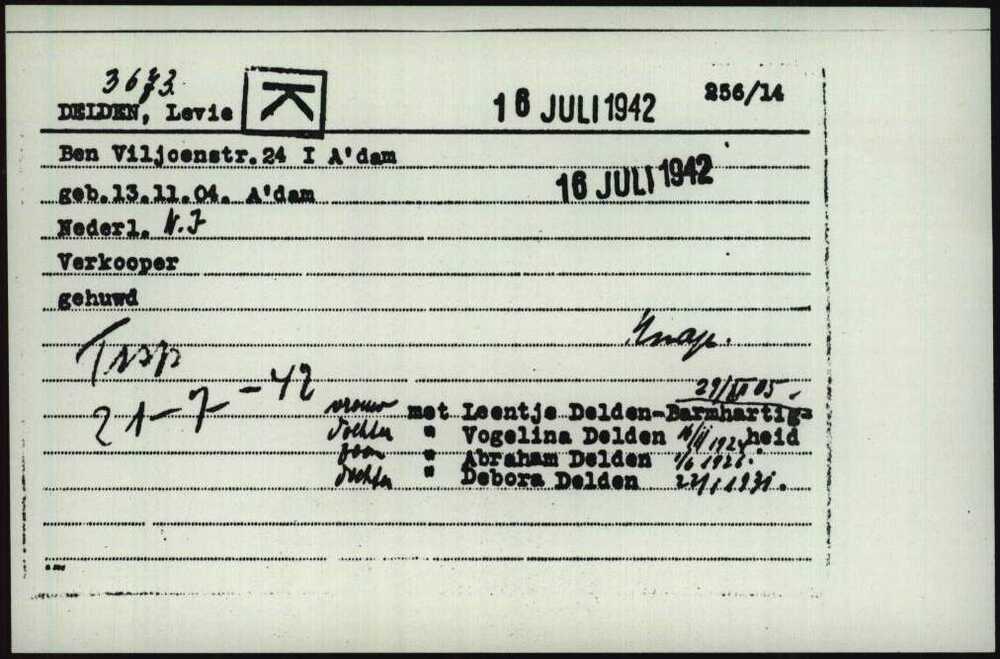 3673.
DELDEN, Levie K 16 JULI 1942 256/14
Ben Viljoenstr.24 I A'dam
geb.13.11.04. A'dam 16 JULI 1942
Nederl. N.I
Verkooper
gehuwd
Knap.
Trsp
21-7-42
29/XII 05.
vrouw met Leentje Delden-Barmhartig=
dochter " Vogelina Delden heid
zoon " Abraham Delden
dochter " Debora Delden 1931.